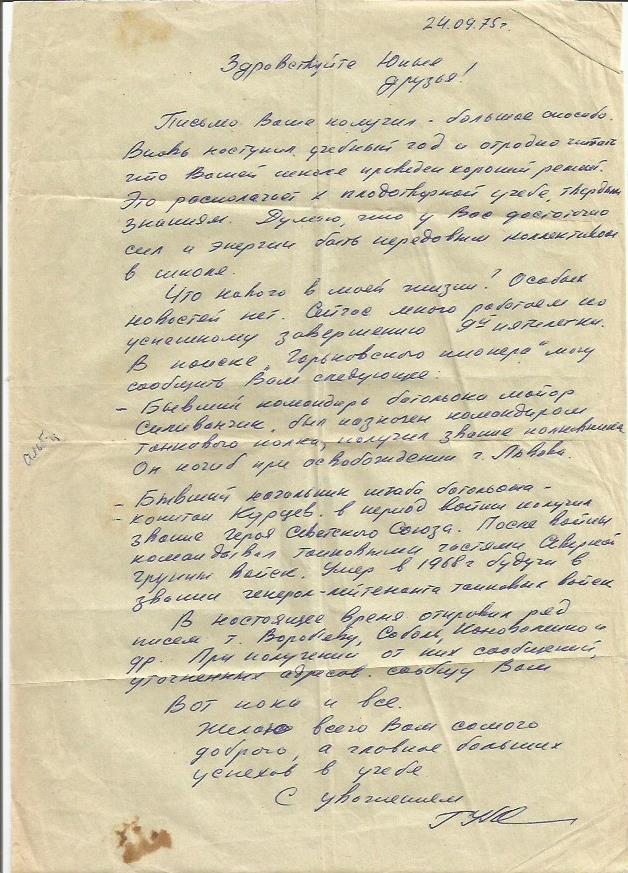 24.09.75г.
Здравствуйте Юные
друзья!
Письмо Ваше получил - большое спасибо.
Вновь наступил учебный год и отрадно читать
что Вашей школе проведен хороший ремонт.
Это располагает к плодотворной учебе, твердым
знаниям. Думаю, что у Вас достаточно
сил и энергии быть передовым коллективом
в школе.
Что нового в моей жизни? Особых
новостей нет. Сейчас много работаем по
успешному завершению 9ой пятилетки.
В поиске "Горьковского пионера" могу
сообщить Вам следующее:
- Бывший командир батальона майор
Силиванчик, был назначен командиром
танкового полка, получил звание полковника
Он погиб при освобождении г. Львова.
- Бывший начальник штаба батальона -
- капитан Курцев. в период войны получил
звание Героя Советского Союза. После войны
командовал танковыми частями Северной
группы Войск. Умер в 1968г будучи в
звании генерал-лейтенанта танковых войск
В настоящее время отправил ряд
писем т. Воробьеву, Соболь, Коноваленко и
др. При получении от них сообщений,
уточненных адресов. сообщу Вам
Вот пока и все.
Желаю всего Вам самого
доброго, а главное больших
успехов в учебе
С уважением